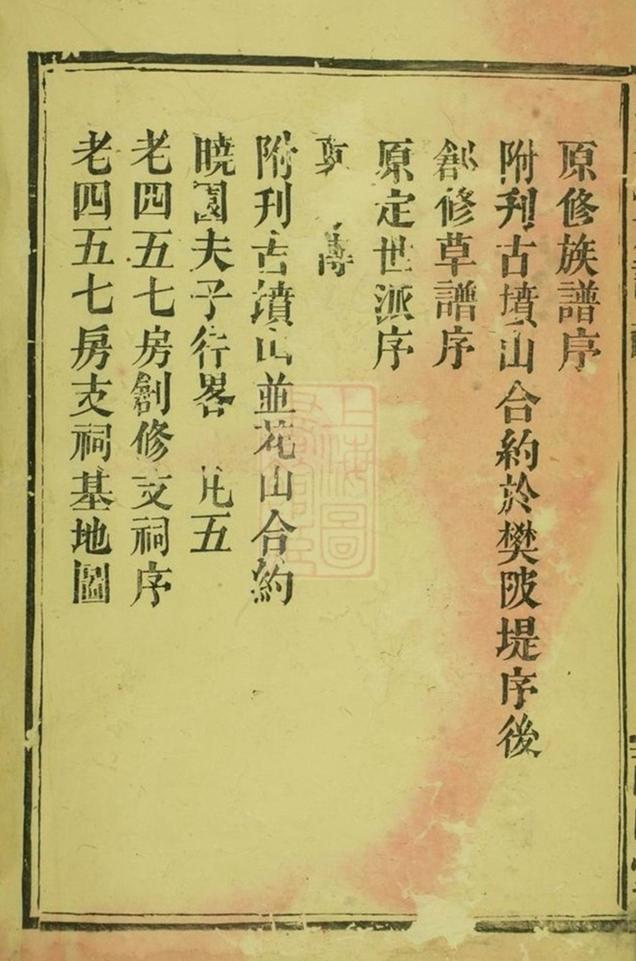 原修族譜序
附刋古墳山合約於樊陂堤序後
創修草譜序
原定世派序
傳
附刋古墳山並花山合約
曉園夫子行畧 五
老四五七房創修支祠序
老四五七房支祠基地圖